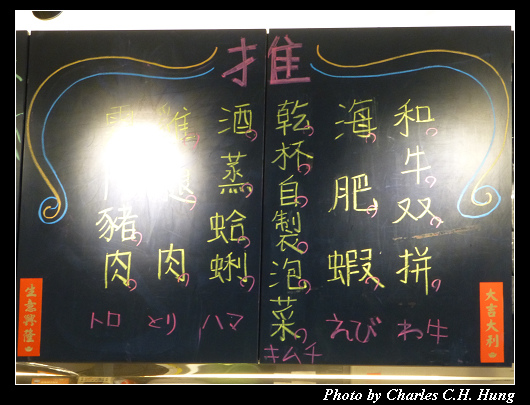 推
和牛双拼
わ牛
海肥蝦
えび
乾杯自製泡菜
キムチ
酒蒸蛤蜊
ハマ
雞腿肉
とり
豬肉
トロ
大吉大利
生意興隆
Photo by Charles C.H. Hung